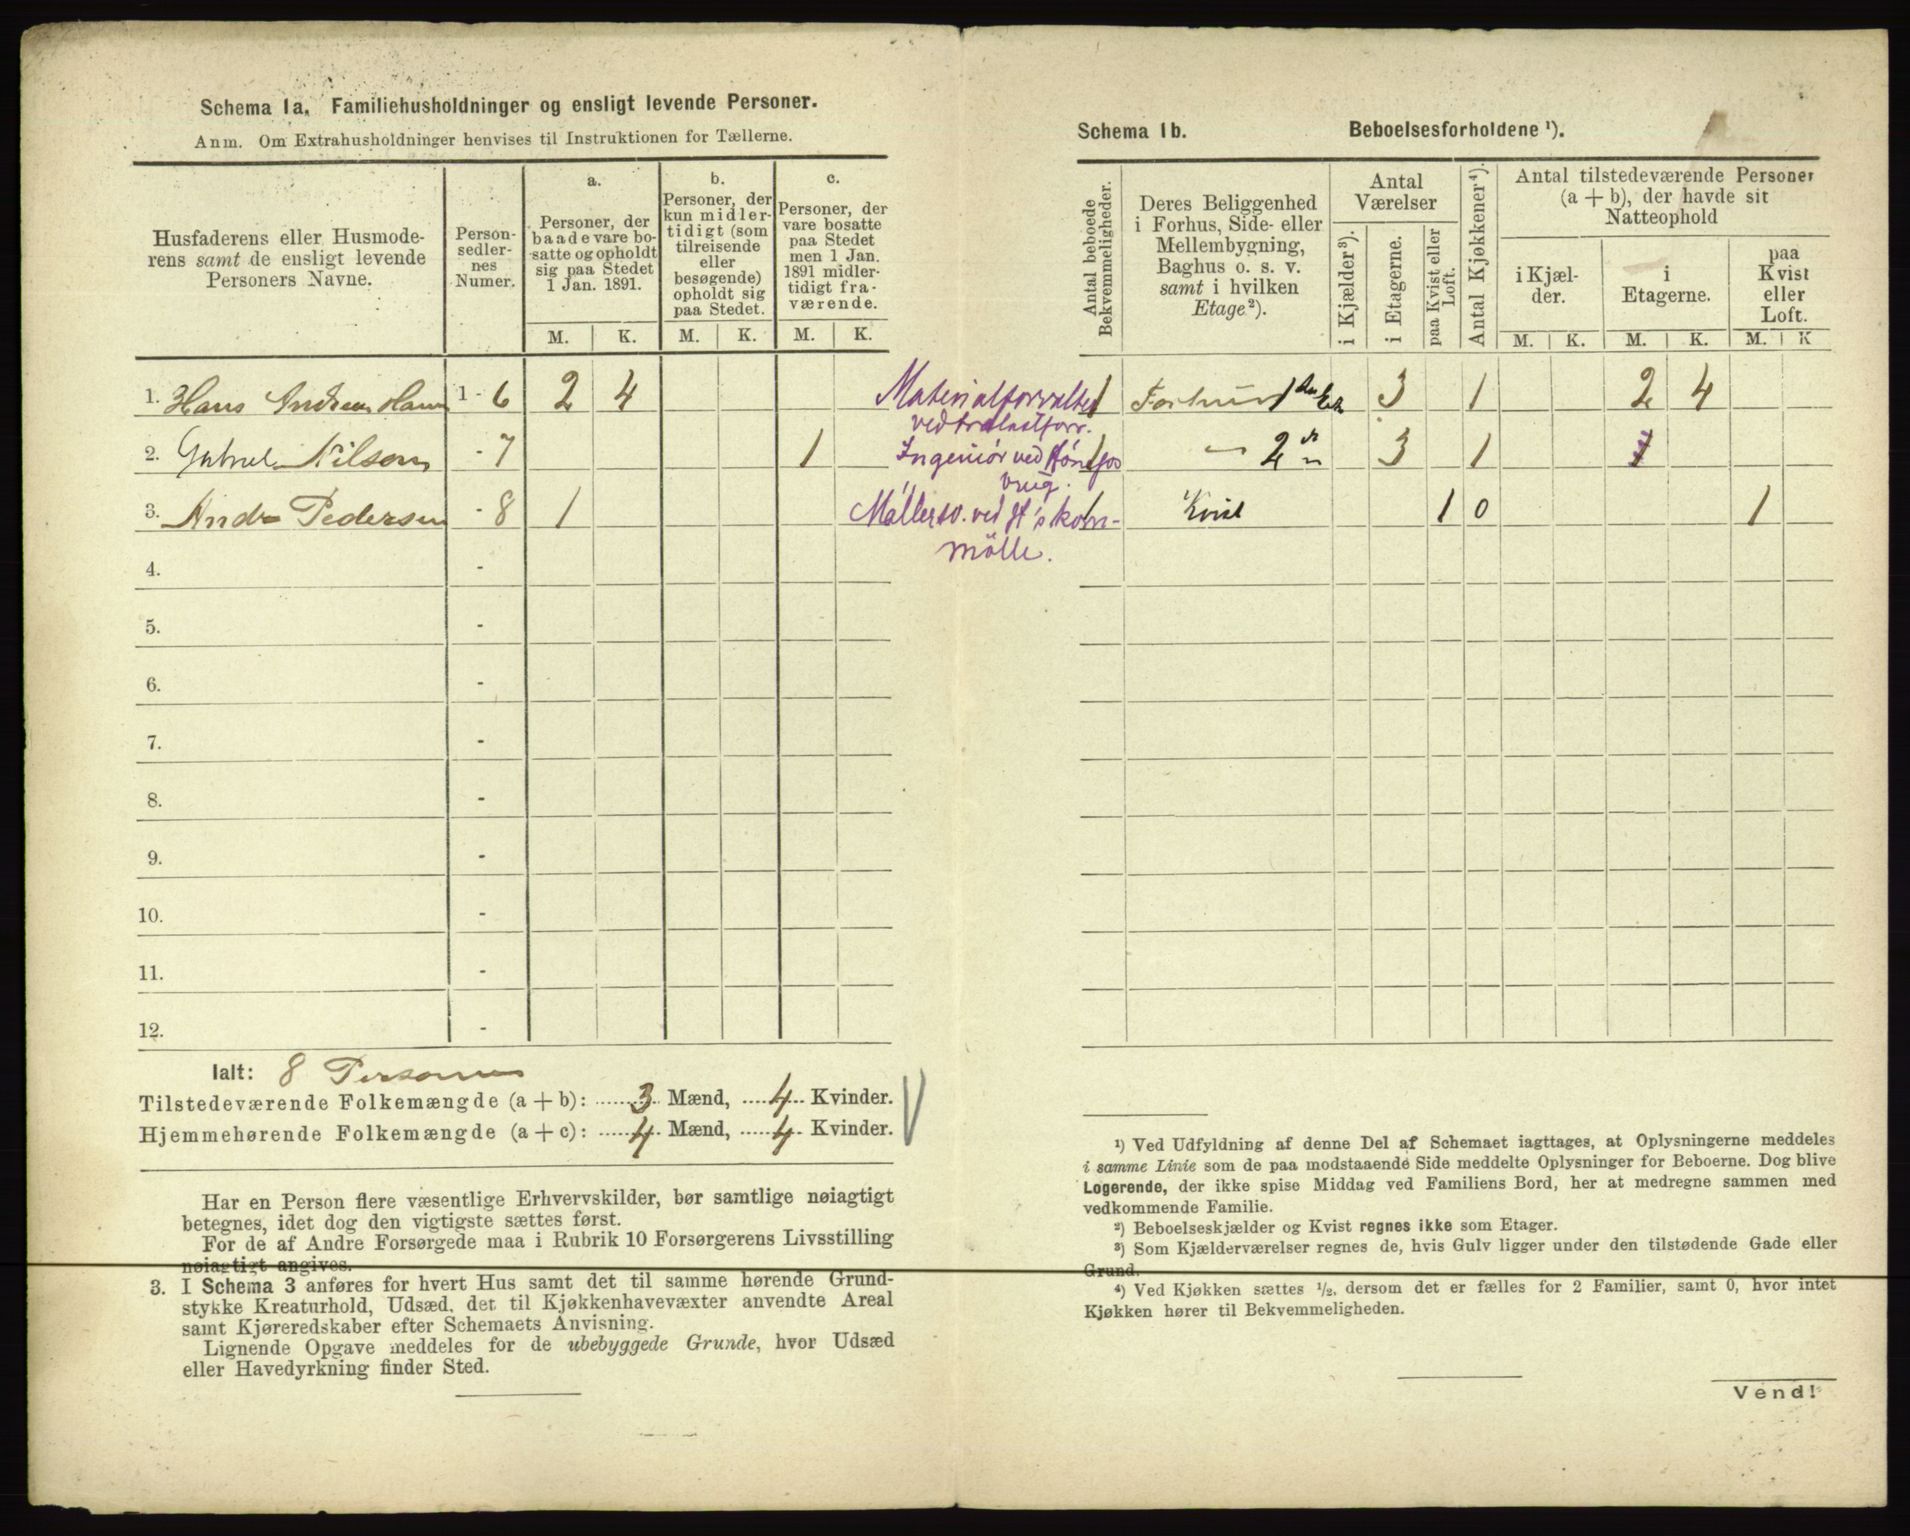 Schema 1a. Familiehusholdninger og ensligt levende Personer.
Anm. Om Extrahusholdninger henvises til Instruktionen for Tællerne.
Husfaderens eller Husmode-
rens samt de ensligt levende
Personers Navne.
Person-
sedler-
nes
Numer.
a.
Personer, der
baade vare bo-
satte og opholdt
sig paa Stedet
1 Jan. 1891.
b.
Personer, der
kun midler-
tidigt (som
tilreisende
eller
besøgende)
opholdt sig
paa Stedet.
c.
Personer, der
vare bosatte
paa Stedet
men 1 Jan.
1891 midler-
tidigt fra-
værende.
M. K. M. K. M. K.
1. Hans Andreas 1 - 6 2 4
2. Gabriel Nilsen - 7 1
3. Andr Pedersen - 8 1
4. -
5. -
6. -
7. -
8. -
9. -
10. -
11. -
12. -
Ialt: 8 Personer
Tilstedeværende Folkemængde (a + b): 3 Mænd, 4 Kvinder.
Hjemmehørende Folkemængde (a + c): 4 Mænd, 4 Kvinder.
Har en Person flere væsentlige Erhvervskilder, bør samtlige nøiagtigt
betegnes, idet dog den vigtigste sættes først.
For de af Andre Forsørgede maa i Rubrik 10 Forsørgerens Livsstilling
nøiagtigt angives.
3. I Schema 3 anføres for hvert Hus samt det til samme hørende Grund-
stykke Kreaturhold, Udsæd, det til Kjøkkenhavevæxter anvendte Areal
samt Kjøreredskaber efter Schemaets Anvisning.
Lignende Opgave meddeles for de ubebyggede Grunde, hvor Udsæd
eller Havedyrkning finder Sted.
Materialforvalter
ved
Ingeniör ved Hönefos
brug.
Möllersv. ved H's korn-
mölle.
Schema 1b. Beboelsesforholdene ¹).
Antal beboede
Bekvemmeligheder.
Deres Beliggenhed
i Forhus, Side- eller
Mellembygning,
Baghus o. s. v.
samt i hvilken
Etage²).
Antal
Værelser
i Kjælder³).
i Etagerne.
paa Kvist eller
Loft.
Antal Kjøkkener⁴).
Antal tilstedeværende Personer
(a + b), der havde sit
Natteophold
i Kjæl-
der.
i
Etagerne.
paa
Kvist
eller
Loft.
M. K. M. K. M. K
1 Forhus 1 3 1 2 4
1 — 2 3 1 1
1 Kvist 1 0 1
¹) Ved Udfyldning af denne Del af Schemaet iagttages, at Oplysningerne meddeles
i samme Linie som de paa modstaaende Side meddelte Oplysninger for Beboerne. Dog blive
Logerende, der ikke spise Middag ved Familiens Bord, her at medregne sammen med
vedkommende Familie.
²) Beboelseskjælder og Kvist regnes ikke som Etager.
³) Som Kjælderværelser regnes de, hvis Gulv ligger under den tilstødende Gade eller
Grund.
⁴) Ved Kjøkken sættes ¹/₂, dersom det er fælles for 2 Familier, samt 0, hvor intet
Kjøkken hører til Bekvemmeligheden.
Vend!